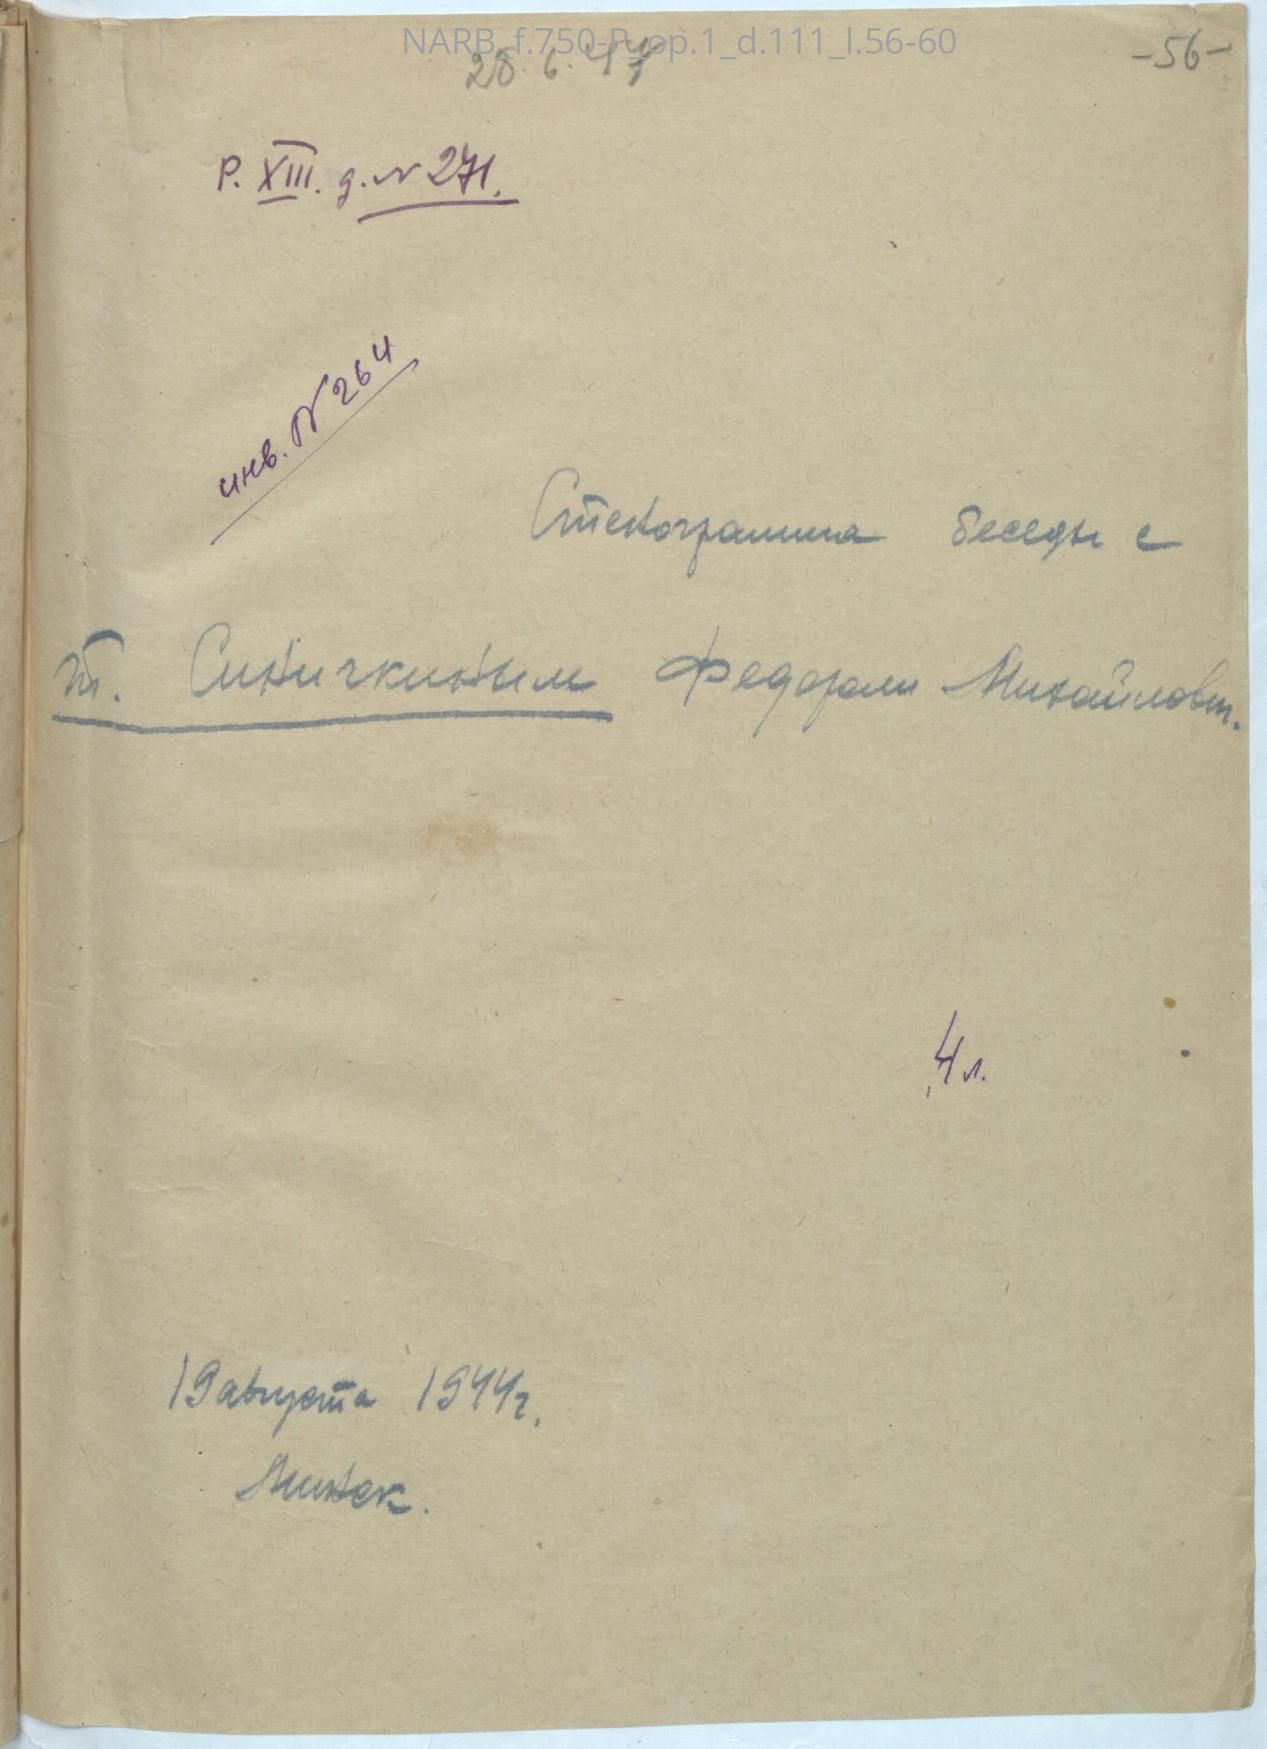 NARB_f.750-P_op.1_d.111_l.56-60
-56-
28.6.47
Р. XIII. д. № 271.
инв. № 264
Стенограмма беседы с
т. Синичкиным Федором Михайлович.
4 л.
19 августа 1944 г.
Минск.